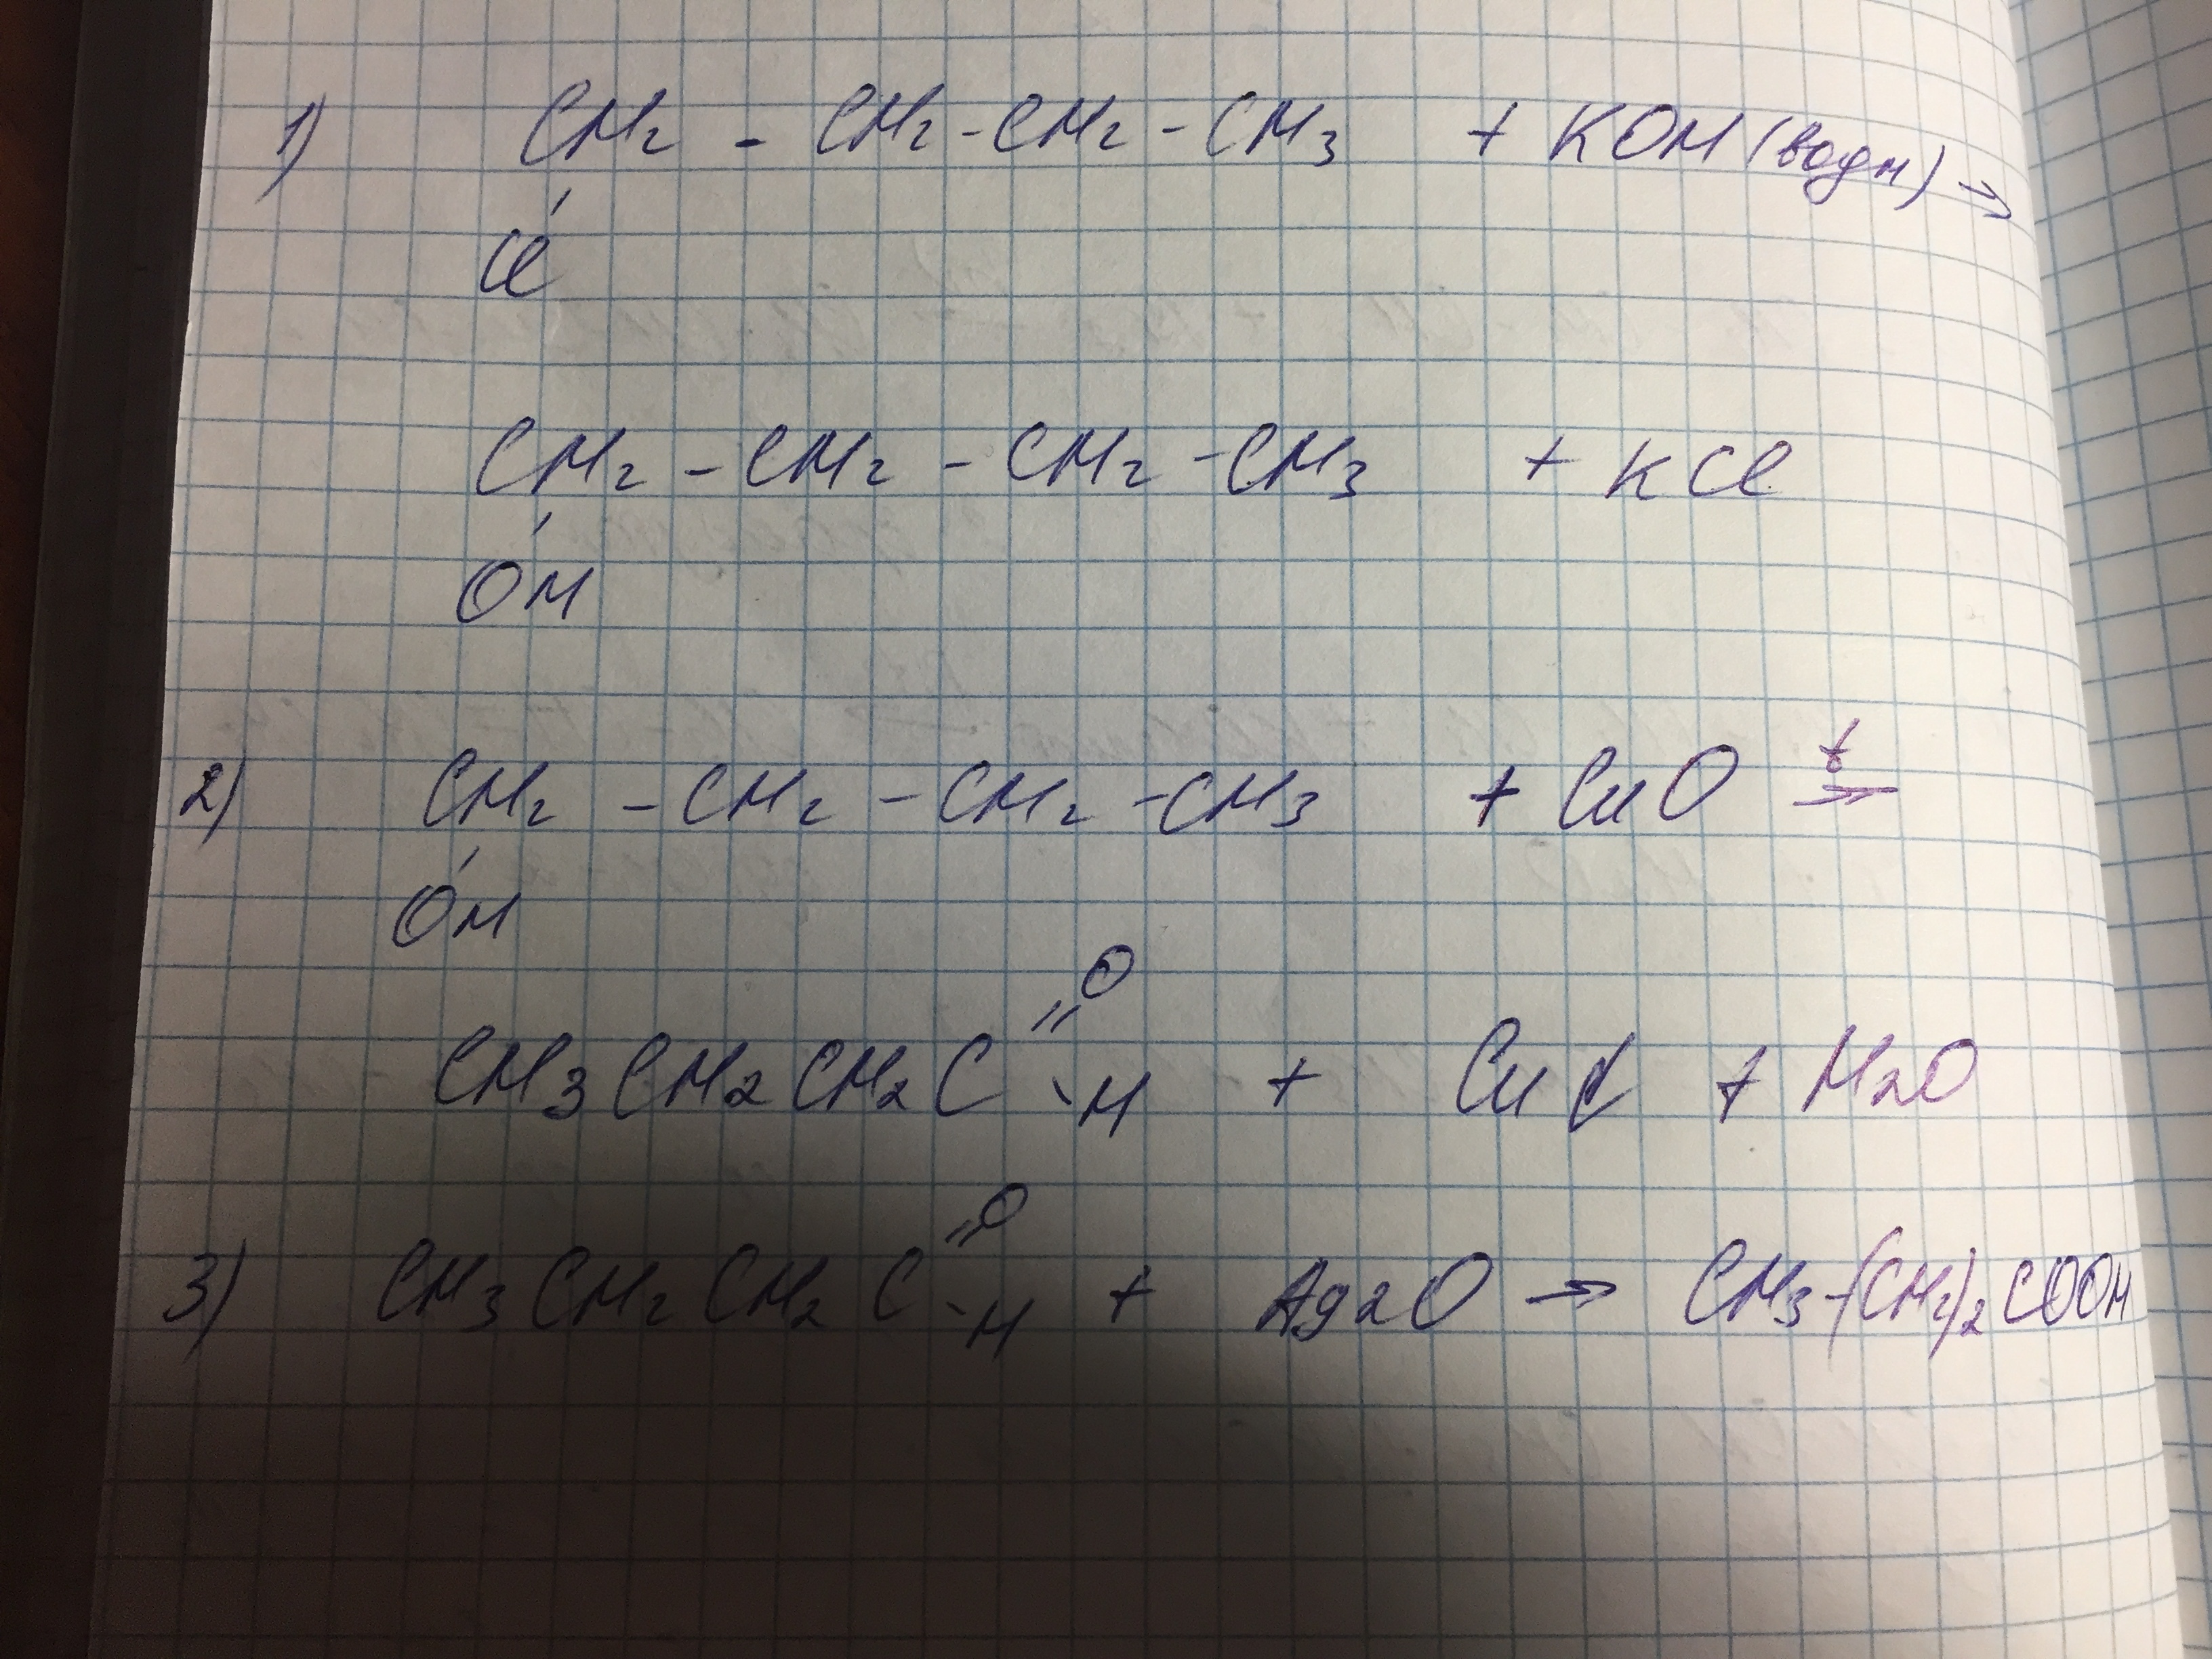 1) CH2 - CH2 - CH2 - CH3 + KOH (водн) →
Cl
CH2 - CH2 - CH2 - CH3 + KCl
OH
2) CH2 - CH2 - CH2 - CH3 + CuO t→
OH
O
CH3CH2CH2C - H + Cu + H2O
O
3) CH3CH2CH2C - H + Ag2O → CH3-(CH2)2COOH